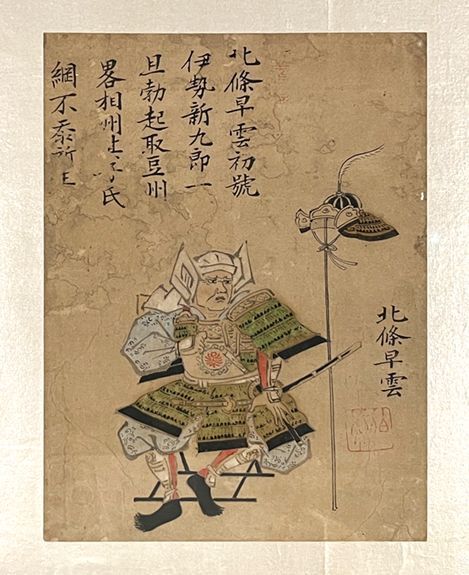 北條早雲初號
伊勢新九郎一
旦勃起取豆州
畧相州上
氏
綱不
北條早雲